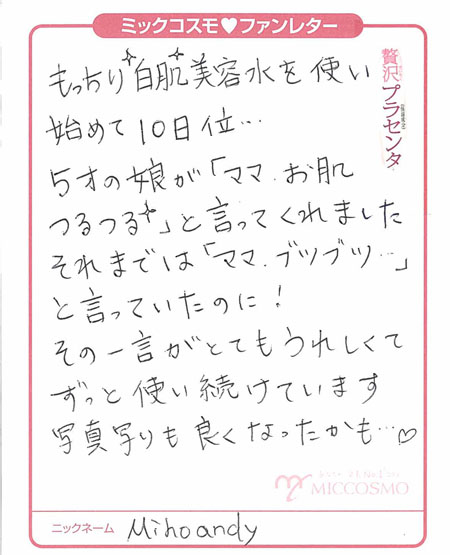 ミックコスモ♥ファンレター
贅沢プラセンタ
もっちり白肌美容水を使い
始めて10日位…
5才の娘が「ママ.お肌
つるつる」と言ってくれました
それまでは「ママ.ブツブツ…」
と言っていたのに!
その一言がとてもうれしくて
ずっと使い続けています
写真写りも良くなったかも…♡
MICCOSMO
ニックネーム Mihoandy